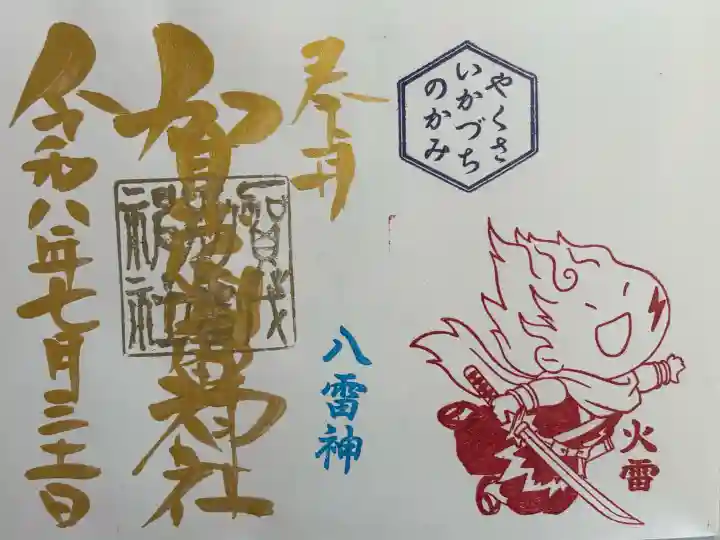 やくさ
いかづち
のかみ
火雷
奉拝
八雷神
賀茂別雷神社
賀茂
別雷
神社
令和八年七月三十一日